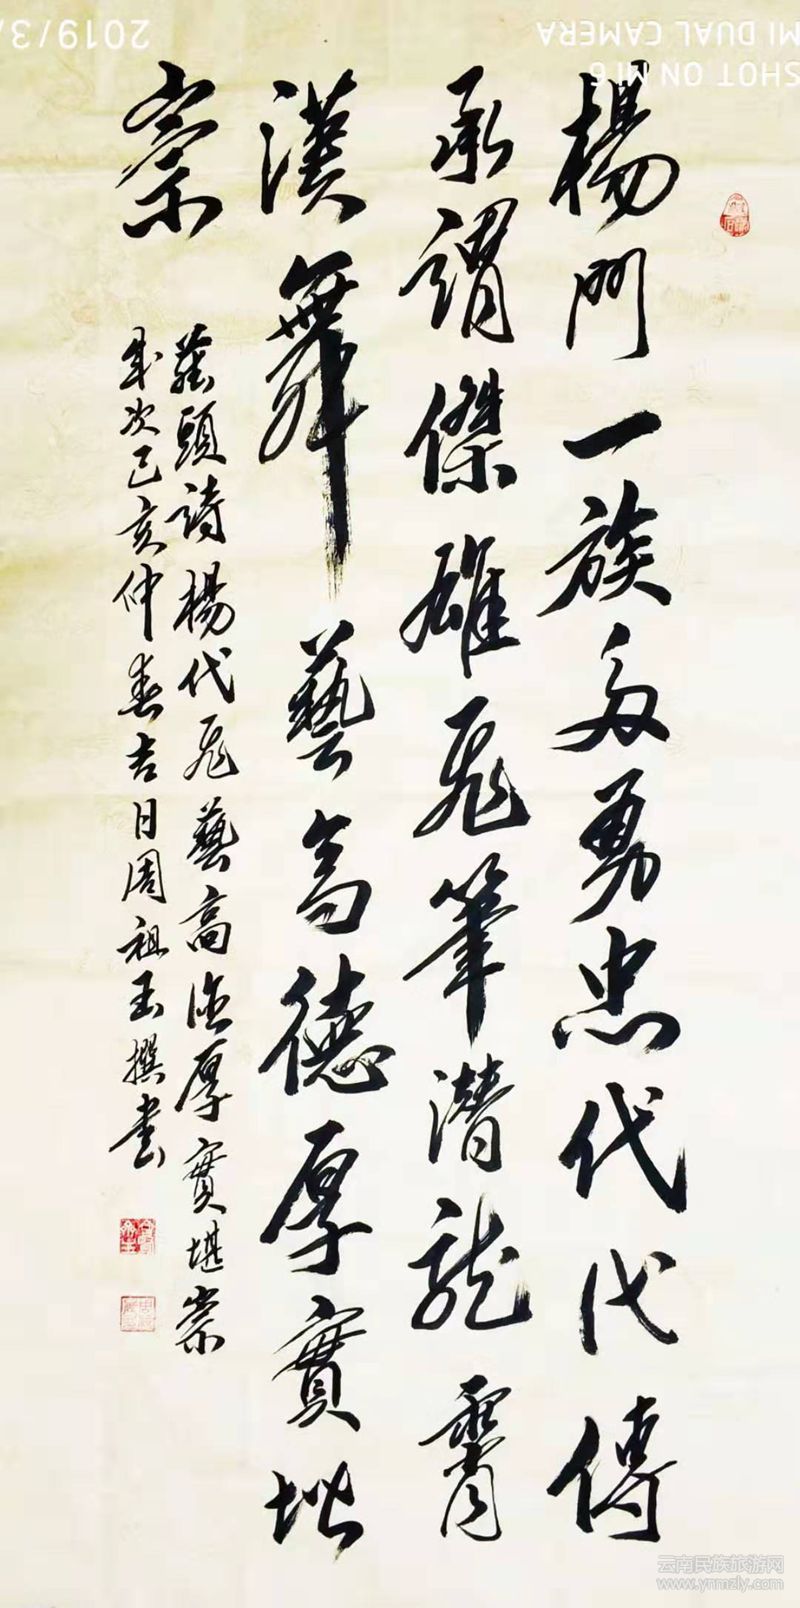 楊門一族多勇忠代代傳
承謂傑雄飛筆潛龍霄
漢舞藝高德厚實堪
崇
藏頭詩楊代飛藝高德厚實堪崇
歲次己亥仲春吉日周祖玉撰書
2019/3/
SHOT ON MI 6
MI DUAL CAMERA
云南民族旅游网
www.ynmzly.com